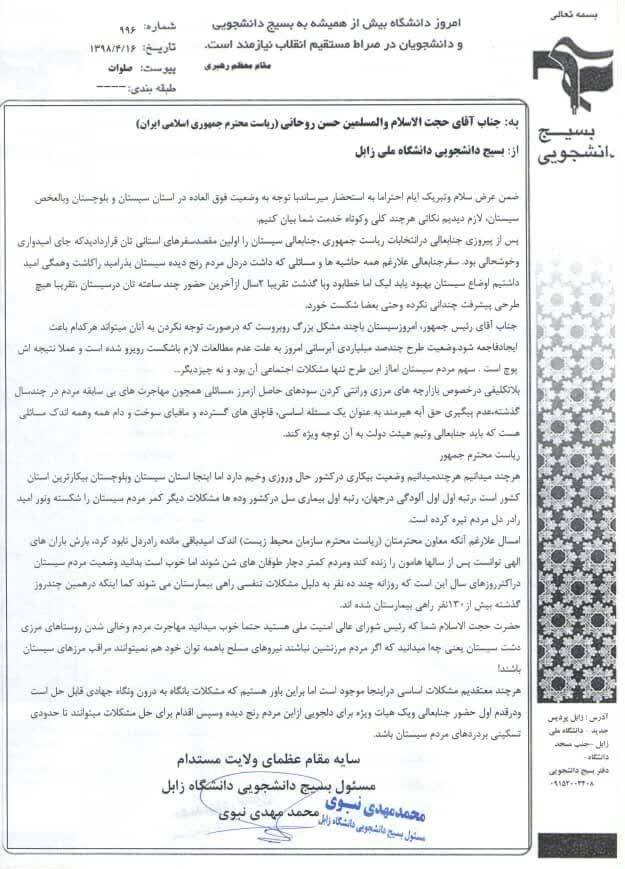 بسمه تعالی
بسیج
دانشجویی
امروز دانشگاه بیش از همیشه به بسیج دانشجویی
و دانشجویان در صراط مستقیم انقلاب نیازمند است.
مقام معظم رهبری
شماره: ۹۹۶
تاریخ: ۱۳۹۸/۴/۱۶
پیوست: صلوات
طبقه بندی: ----
به: جناب آقای حجت الاسلام والمسلمین حسن روحانی (ریاست محترم جمهوری اسلامی ایران)
از: بسیج دانشجویی دانشگاه ملی زابل
ضمن عرض سلام وتبریک ایام احتراما به استحضار میرساندبا توجه به وضعیت فوق العاده در استان سیستان و بلوچستان وبالعخص
سیستان، لازم دیدیم نکاتی هرچند کلی وکوتاه خدمت شما بیان کنیم.
پس از پیروزی جنابعالی درانتخابات ریاست جمهوری ،جنابعالی سیستان را اولین مقصدسفرهای استانی تان قراردادیدکه جای امیدواری
وخوشحالی بود. سفرجنابعالی علارغم همه حاشیه ها و مسائلی که داشت دردل مردم رنج دیده سیستان بذرامید راکاشت وهمگی امید
داشتیم اوضاع سیستان بهبود یابد لیک اما خطابود وبا گذشت تقریبا ۲سال ازآخرین حضور چند ساعته تان درسیستان ،تقریبا هیچ
طرحی پیشرفت چندانی نکرده وحتی بعضا شکست خورد.
جناب آقای رئیس جمهور، امروزسیستان باچند مشکل بزرگ روبروست که درصورت توجه نکردن به آنان میتواند هرکدام باعث
ایجادفاجعه شود.وضعیت طرح چندصد میلیاردی آبرسانی امروز به علت عدم مطالعات لازم باشکست روبرو شده است و عملا نتیجه اش
پوچ است . سهم مردم سیستان امااز این طرح تنها مشکلات اجتماعی آن بود و نه جیزدیگر...
بلاتکلیفی درخصوص بازارچه های مرزی ورانتی کردن سودهای حاصل ازمرز ،مسائلی همچون مهاجرت های بی سابقه مردم در چندسال
گذشته،عدم پیگیری حق آبه هیرمند به عنوان یک مسئله اساسی، قاچاق های گسترده و مافیای سوخت و دام همه وهمه اندک مسائلی
هست که باید جنابعالی وتیم هیئت دولت به آن توجه ویژه کند.
ریاست محترم جمهور
هرچند میدانیم هرچندمیدانیم وضعیت بیکاری درکشور حال وروزی وخیم دارد اما اینجا استان سیستان وبلوچستان بیکارترین استان
کشور است ،رتبه اول اول آلودگی درجهان، رتبه اول بیماری سل درکشور وده ها مشکلات دیگر کمر مردم سیستان را شکسته ونور امید
رادر دل مردم تیره کرده است.
امسال علارغم آنکه معاون محترمتان (ریاست محترم سازمان محیط زیست) اندک امیدباقی مانده رادردل نابود کرد، بارش باران های
الهی توانست پس از سالها هامون را زنده کند ومردم کمتر دچار طوفان های شن شوند اما خوب است بدانید وضعیت مردم سیستان
دراکثرروزهای سال این است که روزانه چند ده نفر به دلیل مشکلات تنفسی راهی بیمارستان می شوند کما اینکه درهمین چندروز
گذشته بیش از۱۳۰نفر راهی بیمارستان شده اند.
حضرت حجت الاسلام شما که رئیس شورای عالی امنیت ملی هستید حتما خوب میدانید مهاجرت مردم وخالی شدن روستاهای مرزی
دشت سیستان یعنی چه!میدانید که اگر مردم مرزنشین نباشند نیروهای مسلح باهمه توان خود هم نمیتوانند مراقب مرزهای سیستان
باشند!
هرچند معتقدیم مشکلات اساسی دراینجا موجود است اما براین باور هستیم که مشکلات بانگاه به درون ونگاه جهادی قابل حل است
ودرقدم اول حضور جنابعالی ویک هیات ویژه برای دلجویی ازاین مردم رنج دیده وسپس اقدام برای حل مشکلات میتوانند تا حدودی
تسکینی بردردهای مردم سیستان باشد.
سایه مقام عظمای ولایت مستدام
مسئول بسیج دانشجویی دانشگاه زابل
محمد مهدی نبوی
محمدمهدی نبوی
مسئول بسیج دانشجویی دانشگاه زابل
آدرس : زابل پردیس
جدید - دانشگاه ملی
زابل -جنب مسجد
دانشگاه-
دفتر بسیج دانشجویی
۰۹۱۵۲۰۰۳۴۰۸